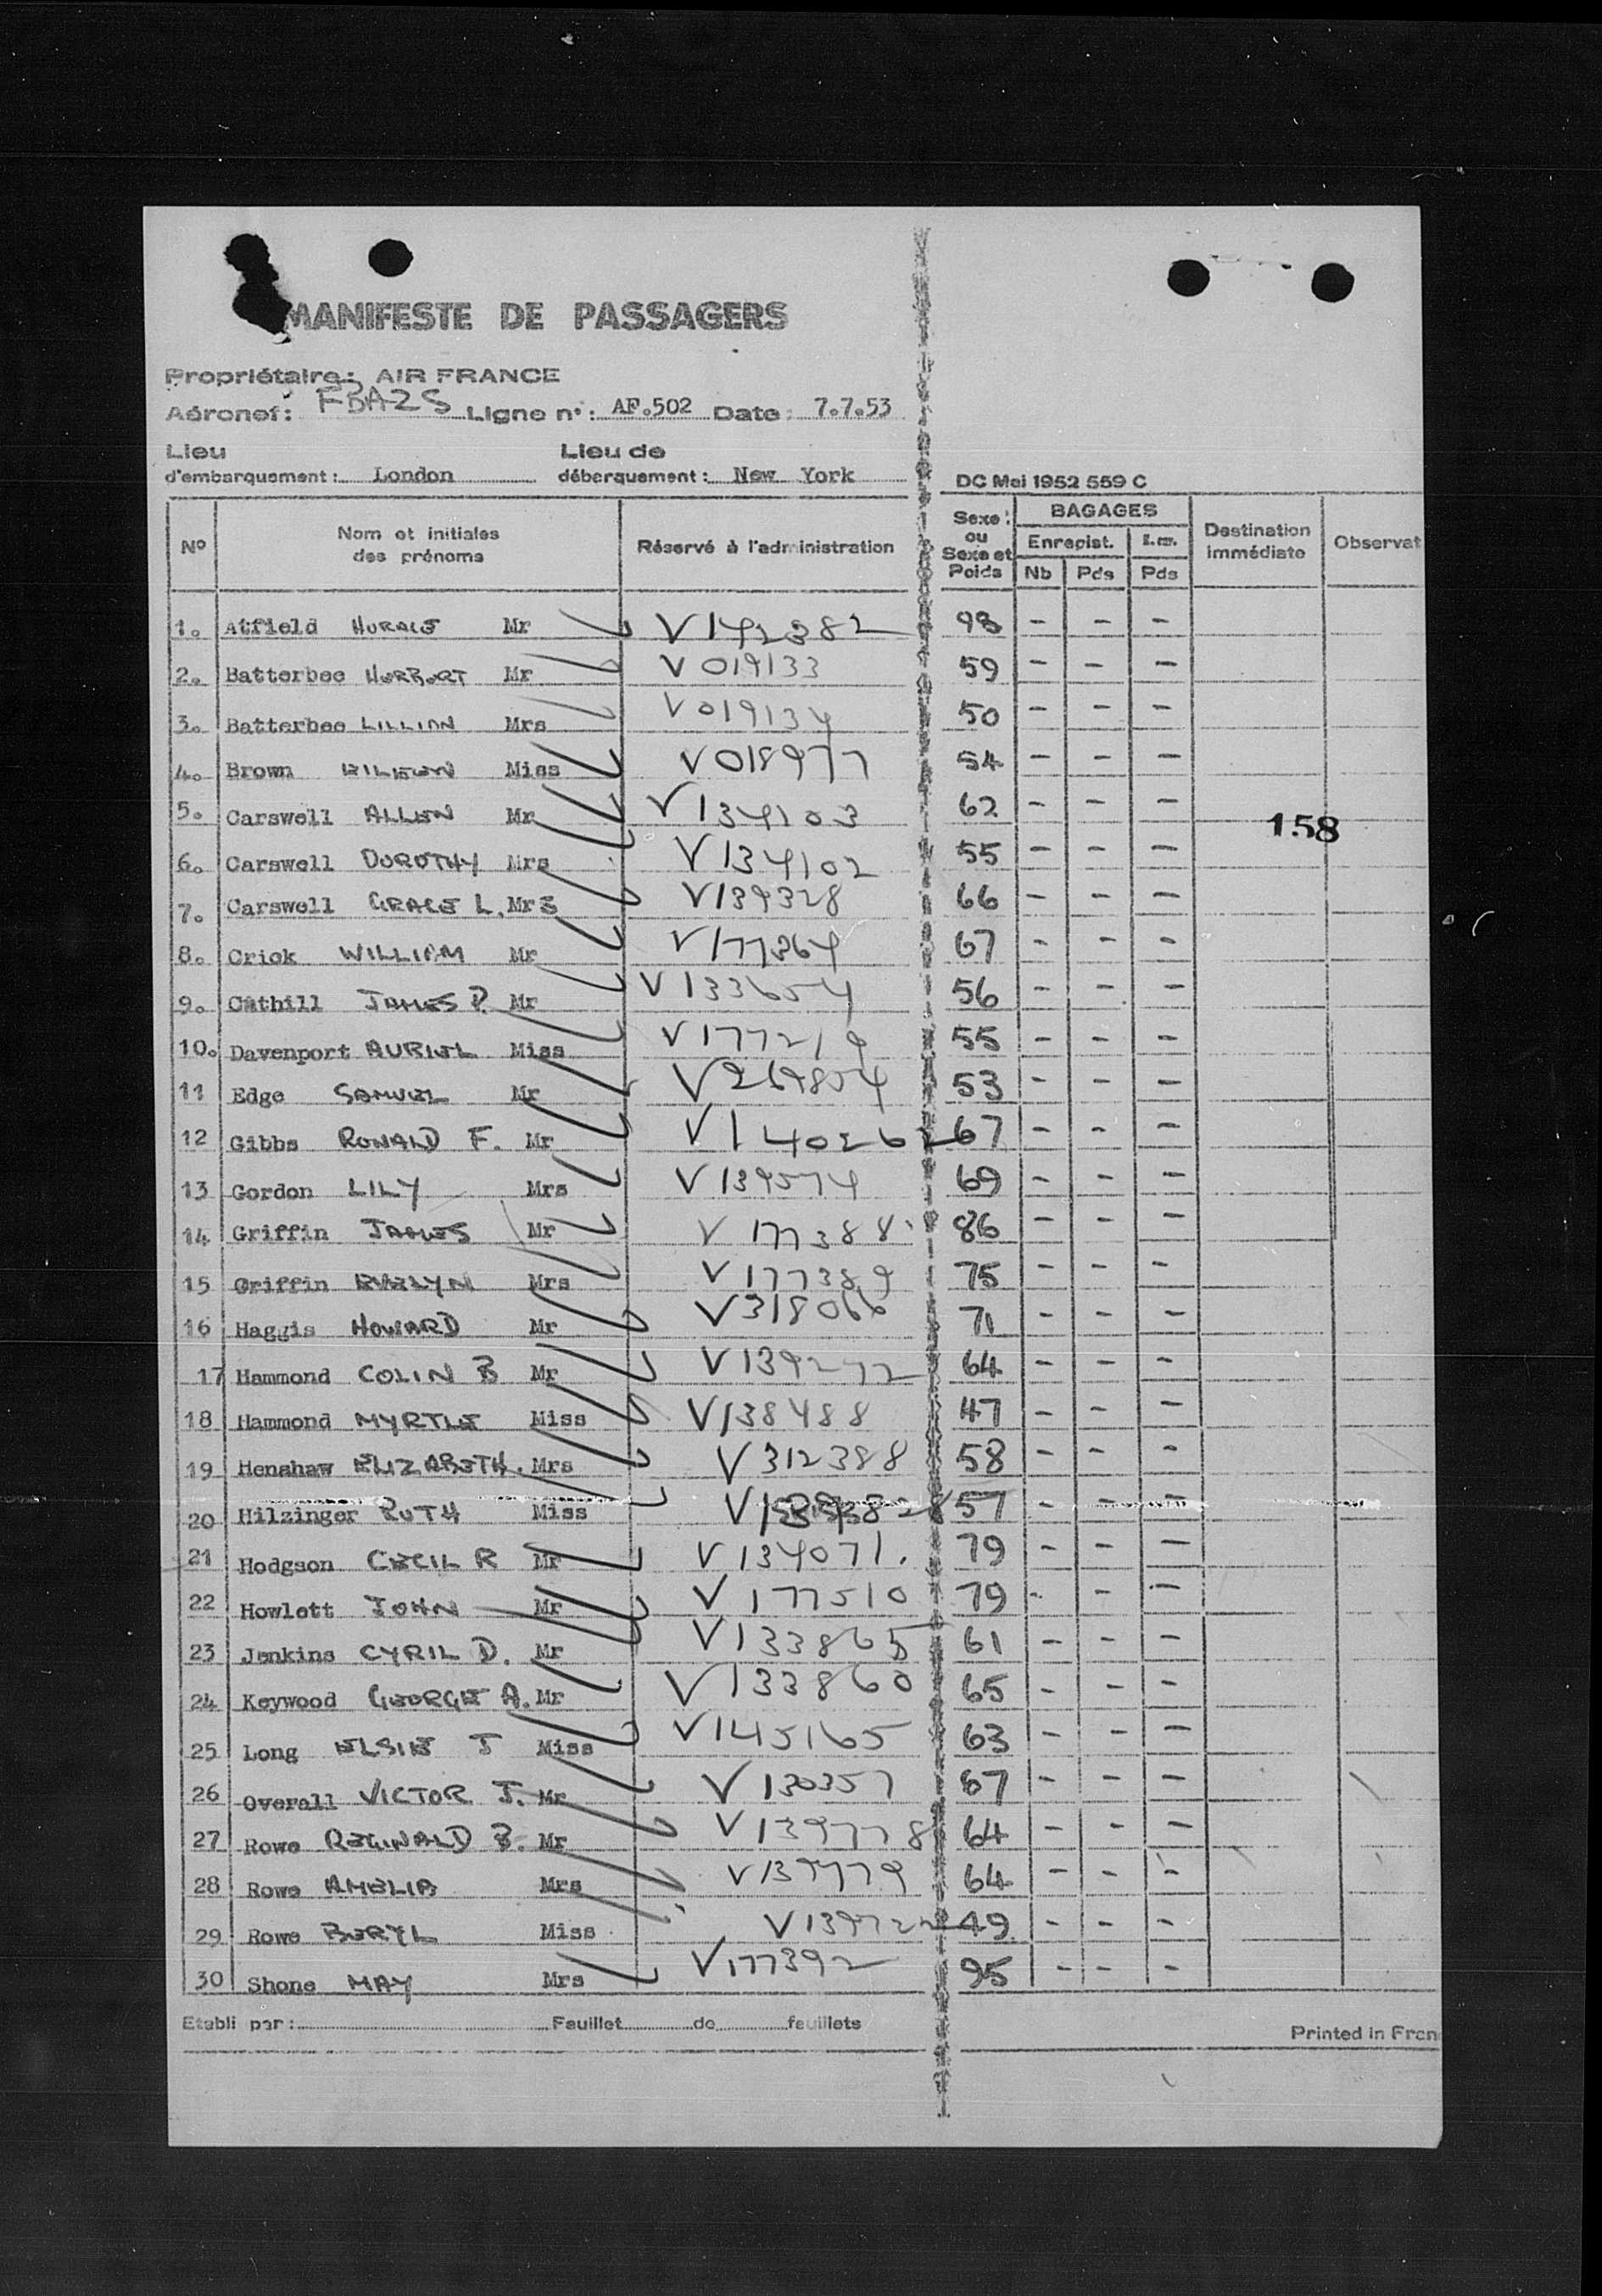 MANIFESTE DE PASSAGERS
Propriétaire: AIR FRANCE
Aéronef: FBAZS Ligne n°: AF.502 Date: 7.7.53
Lieu d'embarquement: London Lieu de débarquement: New York
DC Mai 1952 559 C
N° Nom et initiales des prénoms Réservé à l'administration Sexe ou Sexe et Poids BAGAGES Enregist. Nb Pds Pds Destination immédiate Observat
1. Atfield HORACE Mr V142382 98 - - -
2. Batterbee HERBERT Mr V019133 59 - - -
3. Batterbee LILLIAN Mrs V019134 50 - - -
4. Brown EILEEN Miss V018977 54 - - -
5. Carswell ALLEN Mr V134103 62 - - -
158
6. Carswell DOROTHY Mrs V134102 55 - - -
7. Carswell GRACE L. Mrs V139328 66 - - -
8. Crick WILLIAM Mr V177364 67 - - -
9. Cathill JAMES P. Mr V133654 56 - - -
10. Davenport AURIEL Miss V177219 55 - - -
11 Edge SAMUEL Mr V269854 53 - - -
12 Gibbs RONALD F. Mr V140262 67 - - -
13 Gordon LILY Mrs V139574 69 - - -
14 Griffin JAMES Mr V177388 86 - - -
15 Griffin EVELYN Mrs V177389 75 - - -
16 Haggis HOWARD Mr V318066 71 - - -
17 Hammond COLIN B Mr V139272 64 - - -
18 Hammond MYRTLE Miss V138488 47 - - -
19 Henshaw ELIZABETH. Mrs V312388 58 - - -
20 Hilzinger RUTH Miss 57 - - -
21 Hodgson CECIL R Mr V134071. 79 - - -
22 Howlett JOHN Mr V177510 79 - - -
23 Jenkins CYRIL D. Mr V133865 61 - - -
24 Keywood GEORGE A. Mr V133860 65 - - -
25 Long ELSIE J Miss V145165 63 - - -
26 Overall VICTOR J. Mr V130357 67 - - -
27 Rowe REGINALD B. Mr V139778 64 - - -
28 Rowe AMELIA Mrs V139779 64 - - -
29 Rowe BERYL Miss 49 - - -
30 Shone MAY Mrs V177392 95 - - -
Etabli par: Feuillet de feuillets
Printed in Fran